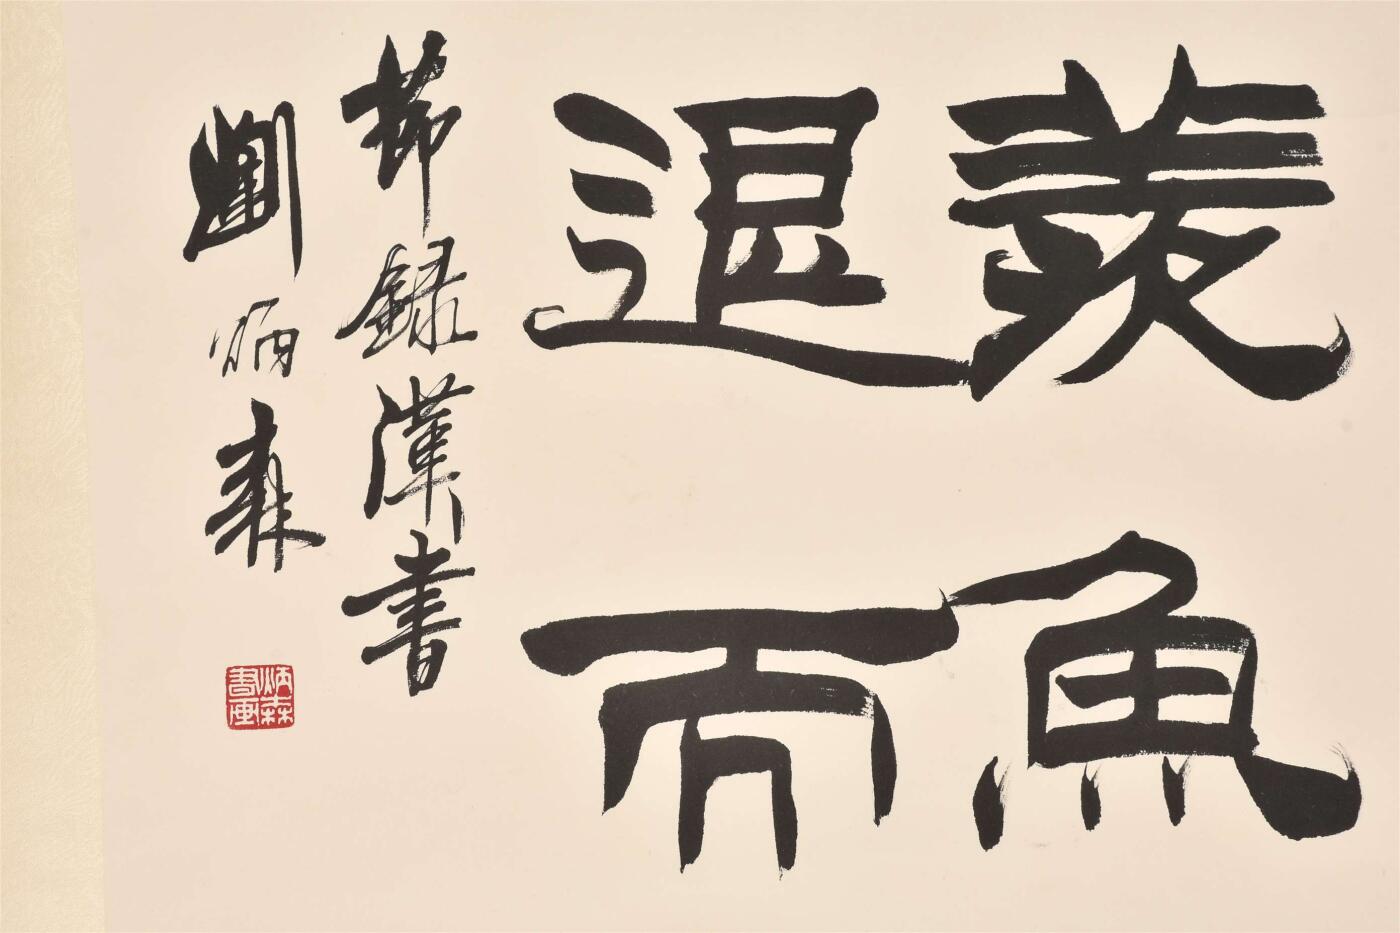 羡魚
退而
節錄漢書
劉炳森
炳森
書画